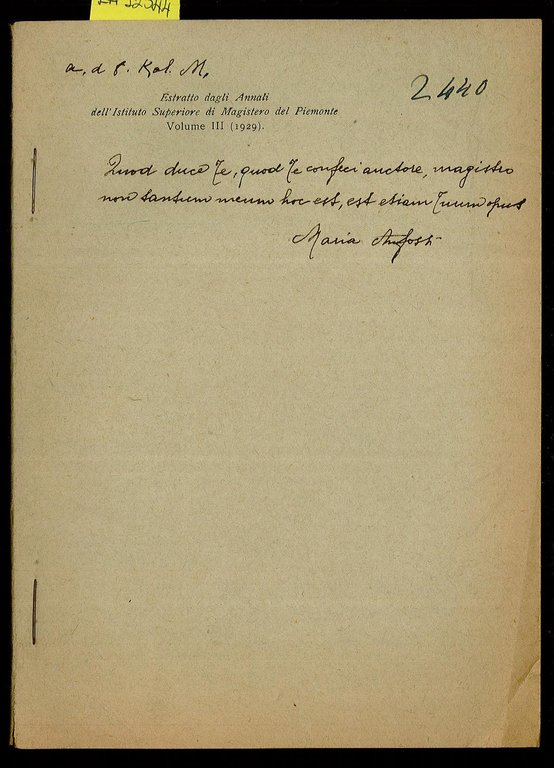 a. d. 8. Kal. M.
2440
Estratto dagli Annali
dell'Istituto Superiore di Magistero del Piemonte
Volume III (1929).
Quod duce Te, quod Te confeci auctore, magistro
non tantum meum hoc est, est etiam Tuum opus
Maria Anfossi